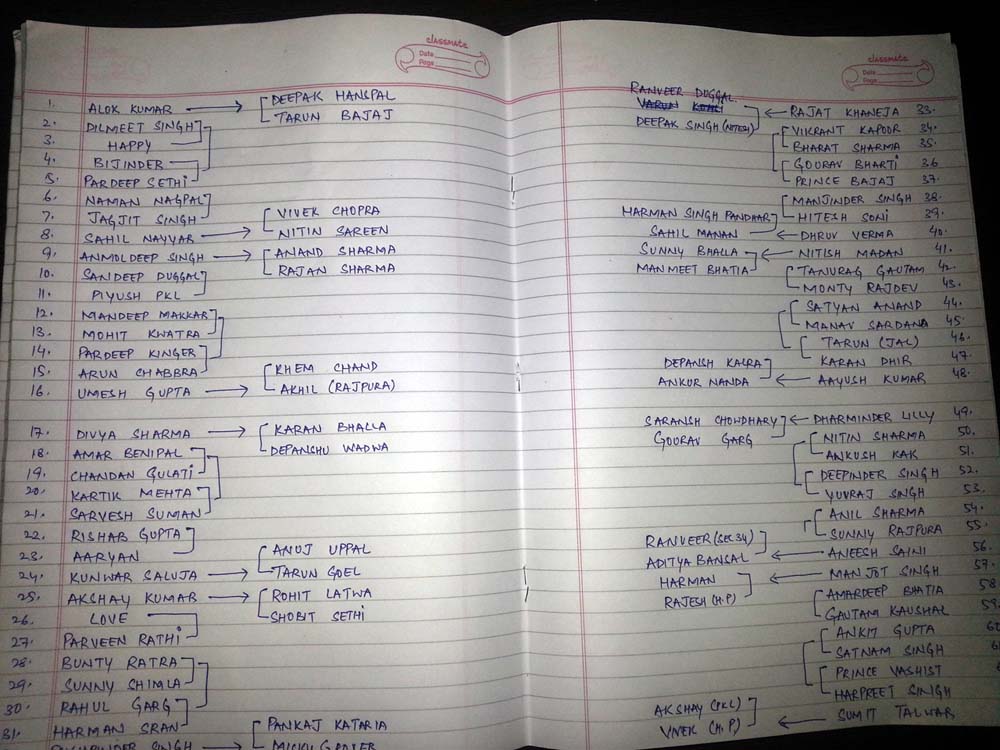 classmate
Date
Page
1. ALOK KUMAR → DEEPAK HANSPAL
TARUN BAJAJ
2. DILMEET SINGH
3. HAPPY
4. BIJINDER
5. PARDEEP SETHI
6. NAMAN NAGPAL
7. JAGJIT SINGH
VIVEK CHOPRA
8. SAHIL NAYYAR → NITIN SAREEN
9. ANMOLDEEP SINGH → ANAND SHARMA
RAJAN SHARMA
10. SANDEEP DUGGAL
11. PIYUSH PKL
12. MANDEEP MAKKAR
13. MOHIT KWATRA
14. PARDEEP KINGER
15. ARUN CHABBRA
KHEM CHAND
16. UMESH GUPTA → AKHIL (RAJPURA)
17. DIVYA SHARMA → KARAN BHALLA
DEPANSHU WADWA
18. AMAR BENIPAL
19. CHANDAN GULATI
20. KARTIK MEHTA
21. SARVESH SUMAN
22. RISHAB GUPTA
23. AARYAN
ANUJ UPPAL
24. KUNWAR SALUJA → TARUN GOEL
25. AKSHAY KUMAR → ROHIT LATWA
SHOBIT SETHI
26. LOVE
27. PARVEEN RATHI
28. BUNTY RATRA
29. SUNNY SHIMLA
30. RAHUL GARG
31. HARMAN SRAN
PANKAJ KATARIA
SINGH →
classmate
Date
Page
RANVEER DUGGAL
VARUN
DEEPAK SINGH (NITESH) ← RAJAT KHANEJA 33.
VIKRANT KAPOOR 34.
BHARAT SHARMA 35.
GOURAV BHARTI 36
PRINCE BAJAJ 37.
MANJINDER SINGH 38.
HARMAN SINGH PANDHAR HITESH SONI 39.
SAHIL MANAN ← DHRUV VERMA 40.
SUNNY BHALLA ← NITISH MADAN 41.
MANMEET BHATIA
TANURAG GAUTAM 42.
MONTY RAJDEV 43.
SATYAN ANAND 44.
MANAV SARDANA 45.
TARUN (JAL) 46.
DEPANSH KALRA KARAN DHIR 47.
ANKUR NANDA ← AAYUSH KUMAR 48.
SARANSH CHOWDHARY ← DHARMINDER LILLY 49.
GOURAV GARG
NITIN SHARMA 50.
ANKUSH KAK 51.
DEEPINDER SINGH 52.
YUVRAJ SINGH 53.
ANIL SHARMA 54.
SUNNY RAJPURA 55.
RANVEER (SEC 34)
ADITYA BANSAL ← ANEESH SAINI 56.
HARMAN ← MANJOT SINGH 57.
RAJESH (H.P)
AMARDEEP BHATIA 58
GAUTAM KAUSHAL 59.
ANKIT GUPTA 60
SATNAM SINGH
PRINCE VASHIST
HARPREET SINGH
AKSHAY (PKL)
VIVEK (H.P) ← SUMIT TALWAR